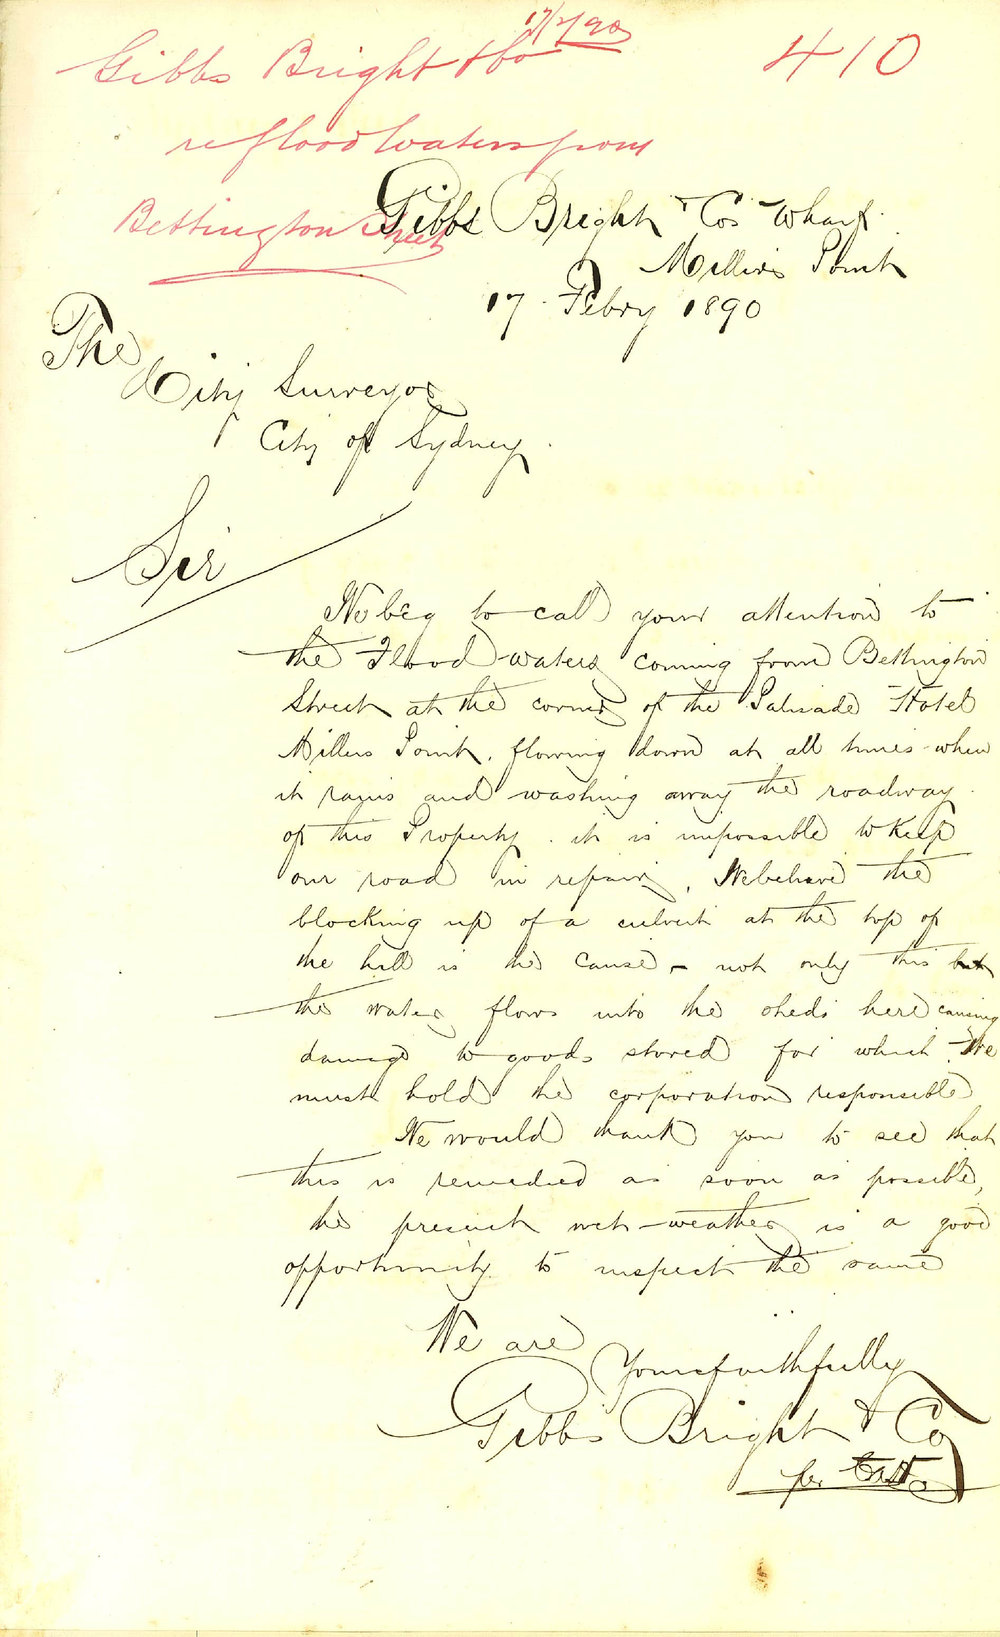 17/2/90
Gibbs Bright & Co
410
re flood waters from
Bettington Street
Gibbs Bright & Co's Wharf.
Millers Point
17 Febry 1890
The
City Surveyor
City of Sydney.
Sir
We beg to call your attention to
the Flood waters coming from Bettington
Street at the corner of the Palisade Hotel
Millers Point. flowing down at all times when
it rains and washing away the roadway
of this Property. it is impossible to Keep
our road in repair, We believe the
blocking up of a culvert at the top of
the hill is the cause - not only this but
the water flows into the sheds here causing
damage to goods stored for which We
must hold the corporation responsible
We would thank you to see that
this is remedied as soon as possible,
the present wet-weather is a good
opportunity to inspect the same
We are
Yours faithfully
Gibbs Bright & Co
per